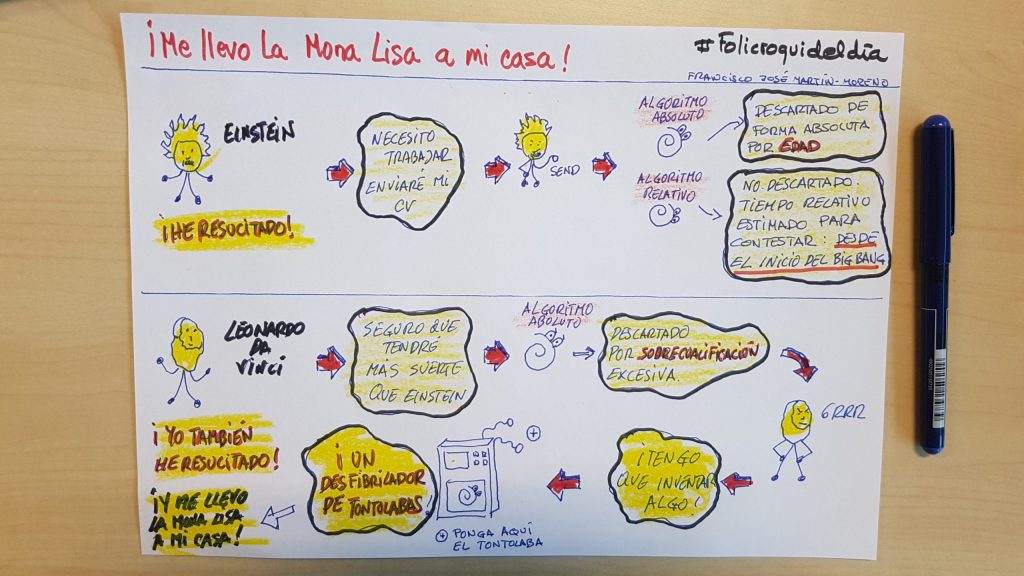 ¡Me llevo La Mona Lisa a mi casa!
#Folicroquideldía
FRANCISCO JOSÉ MARTÍN-MORENO
EINSTEIN
¡HE RESUCITADO!
NECESITO
TRABAJAR
ENVIARÉ MI
CV
SEND
ALGORITMO
ABSOLUTO
DESCARTADO DE
FORMA ABSOLUTA
POR EDAD
ALGORITMO
RELATIVO
NO DESCARTADO.
TIEMPO RELATIVO
ESTIMADO PARA
CONTESTAR: DESDE
EL INICIO DEL BIG BANG
LEONARDO
DA
VINCI
SEGURO QUE
TENDRÉ
MAS SUERTE
QUE EINSTEIN
ALGORITMO
ABOLUTO
DESCARTADO
POR SOBRECUALIFICACIÓN
EXCESIVA.
GRRR
¡TENGO
QUE INVENTAR
ALGO!
+
+ PONGA AQUÍ
EL TONTOLABA
¡UN
DESFIBRILADOR
DE TONTOLABAS!
¡YO TAMBIÉN
HE RESUCITADO!
¡Y ME LLEVO
LA MONA LISA
A MI CASA!